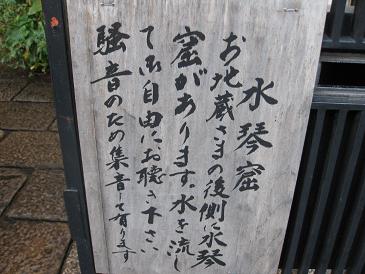 水琴窟
お地蔵さまの後側に水琴
窟があります。水を流し
てご自由にお聴き下さい
騒音のため集音して有ります